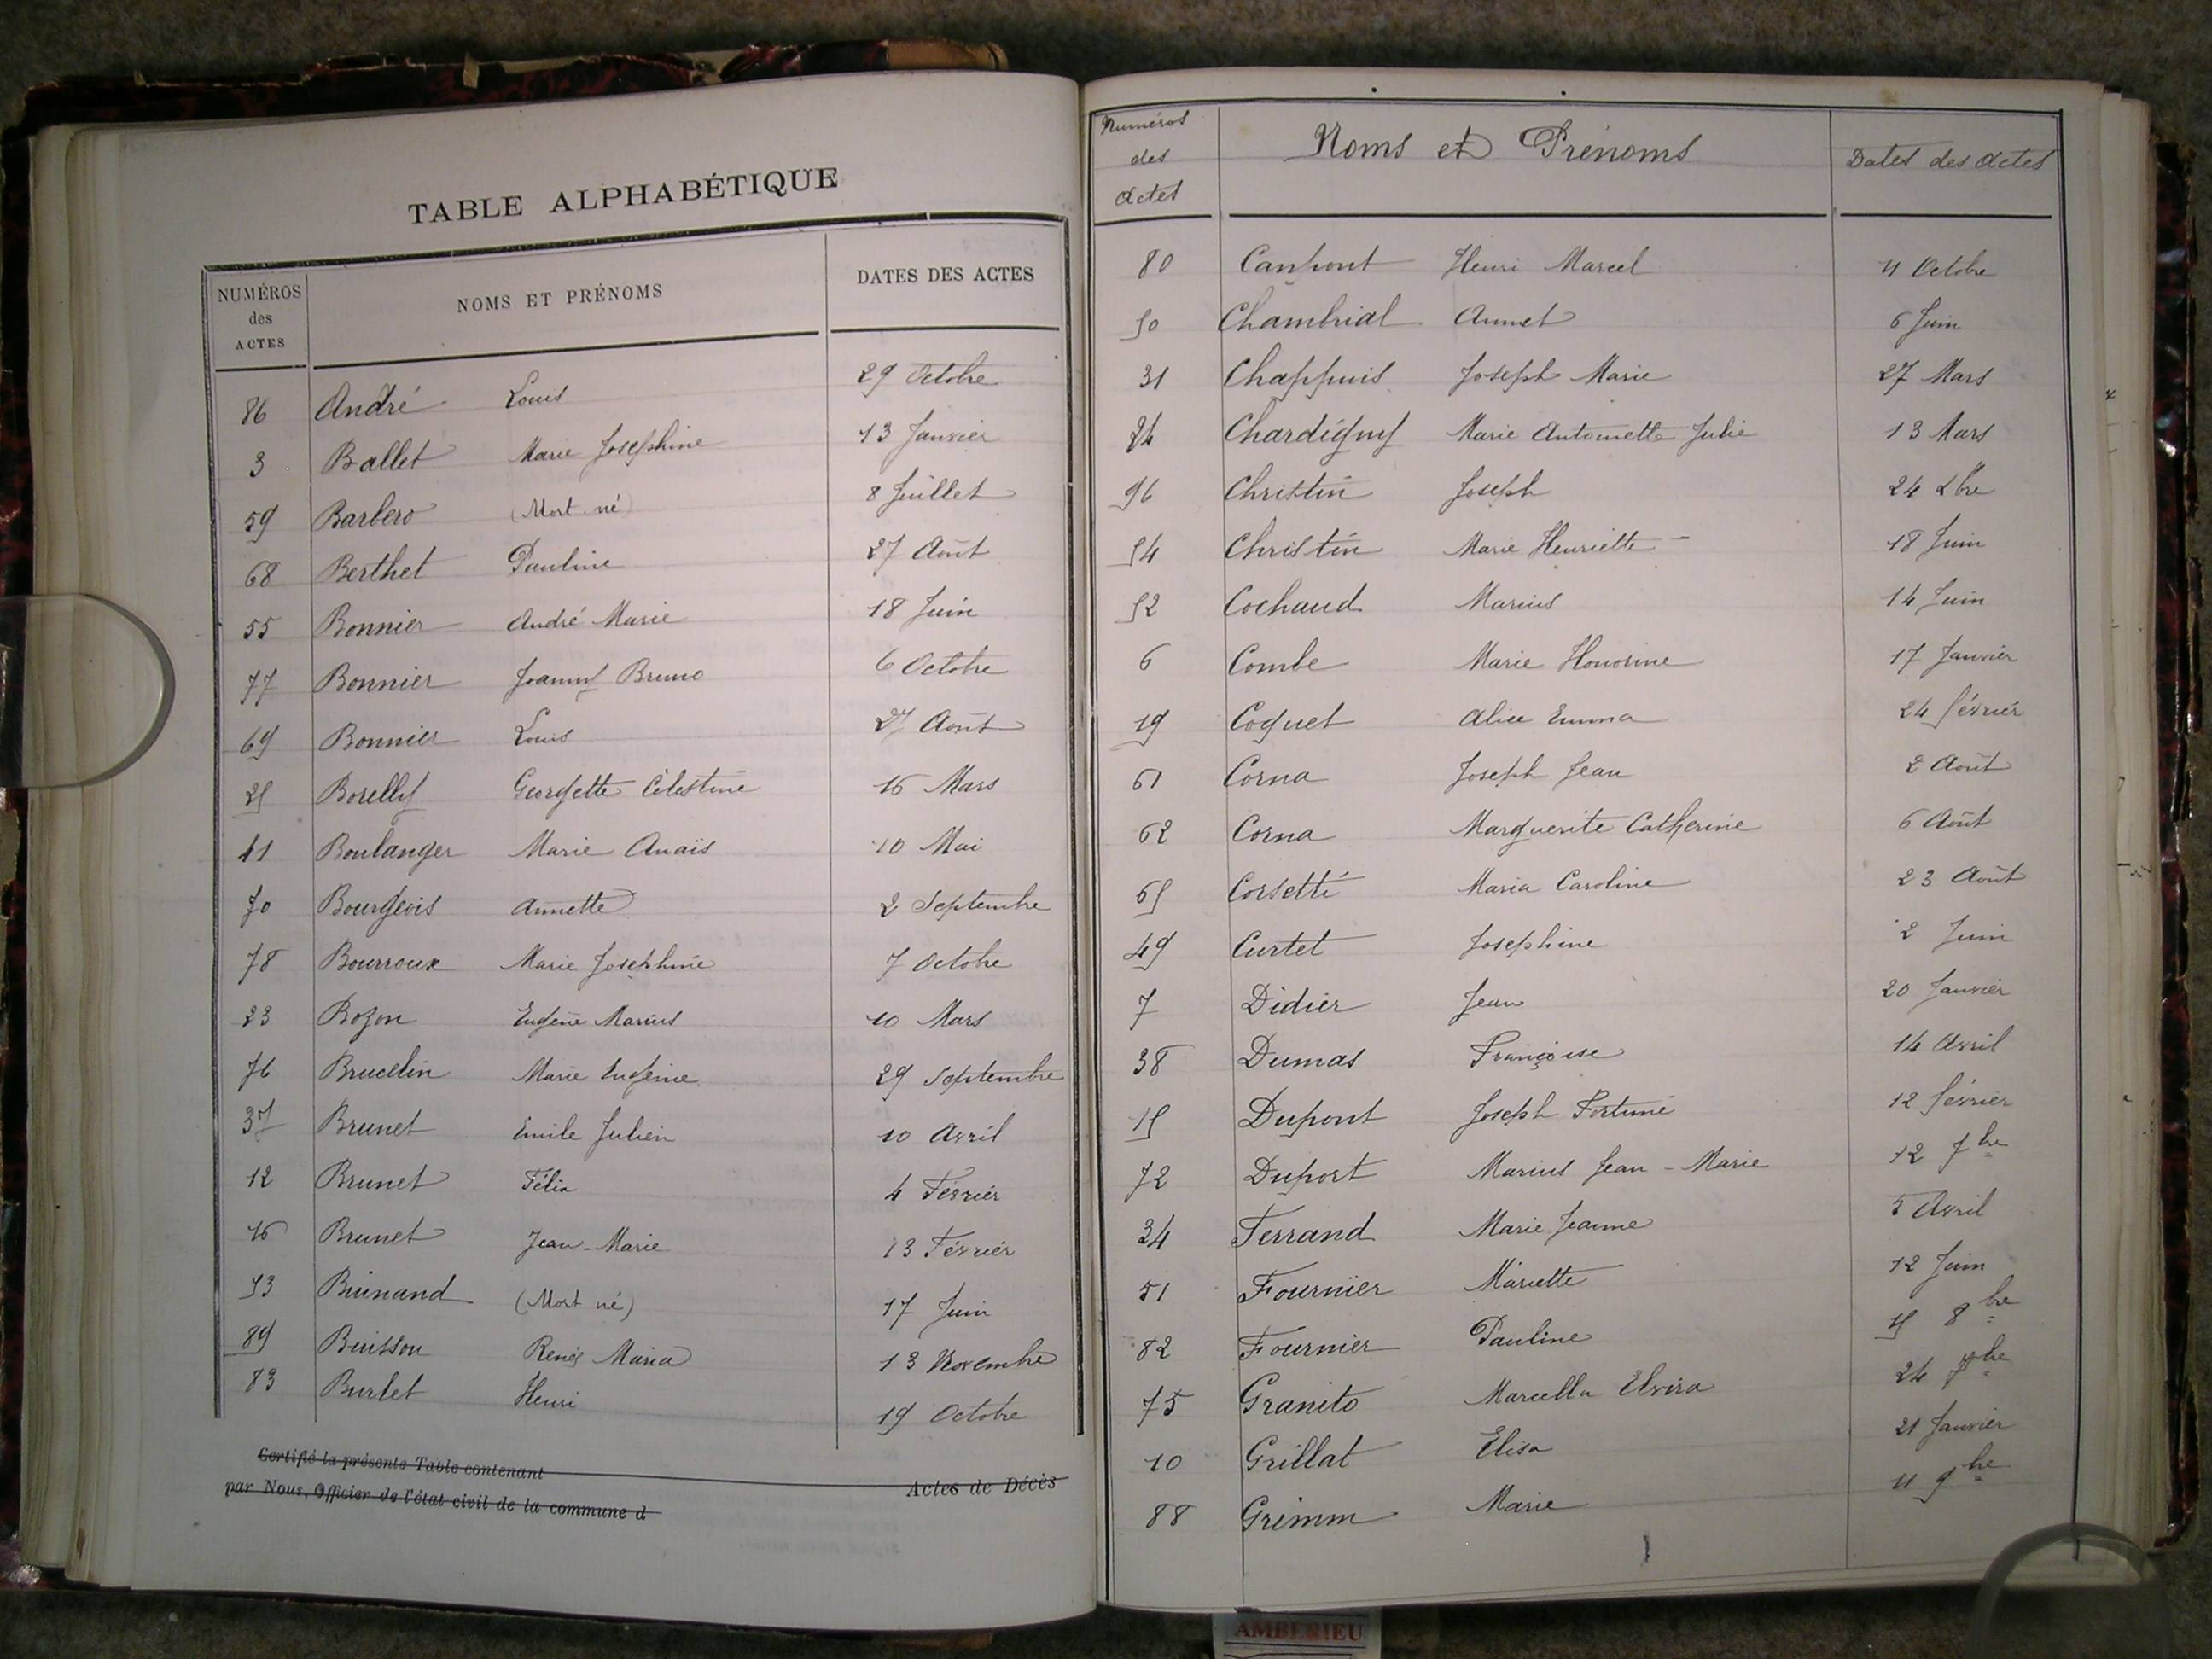 TABLE ALPHABÉTIQUE
NUMÉROS des ACTES NOMS ET PRÉNOMS DATES DES ACTES
86 André Louis 29 Octobre
3 Ballet Marie Josephine 13 Janvier
59 Barbero (Mort né) 8 Juillet
68 Berthet Pauline 27 Août
55 Bonnier André Marie 18 Juin
77 Bonnier Joanny Bruno 6 Octobre
69 Bonnier Louis 27 Août
25 Borelly Georgette Célestine 16 Mars
41 Boulanger Marie Anaïs 10 Mai
70 Bourgeois Annette 2 Septembre
78 Bourroux Marie Josephine 7 Octobre
23 Bozon Eugène Marius 10 Mars
76 Brucelin Marie Eugénie 29 Septembre
37 Brunet Emile Julien 10 Avril
12 Brunet Félix 4 Février
16 Brunet Jean-Marie 13 Février
53 Buinand (Mort né) 17 Juin
89 Buisson Maria 13 Novembre
83 Burlet Henri 19 Octobre
Certifié la présente Table contenant Actes de Décès
par Nous, Officier de l'état civil de la commune d
Numéros des Actes Noms et Prénoms Dates des Actes
80 Canpont Henri Marcel 11 Octobre
50 Chambrial Annet 6 Juin
31 Chappuis Joseph Marie 27 Mars
24 Chardigny Marie Antoinette Julie 13 Mars
96 Christin Joseph 24 Xbre
54 Christin Marie Henriette 18 Juin
52 Cochaud Marius 14 Juin
6 Combe Marie Honorine 17 Janvier
19 Coquet Alice Emma 24 février
61 Corna Joseph Jean 2 Août
62 Corna Marguerite Catherine 6 Août
65 Corsetti Maria Caroline 23 Août
49 Curtet Josephine 2 Juin
7 Didier Jean 20 Janvier
38 Dumas Françoise 14 Avril
15 Dupont Joseph Fortuné 12 février
72 Duport Marius Jean-Marie 12 7bre
34 Ferrand Marie Jeanne 5 Avril
51 Fournier Mariette 12 Juin
82 Fournier Pauline 15 8bre
75 Granito Marcella Elvira 24 7bre
10 Grillat Elisa 21 Janvier
88 Grimm Marie 11 9bre
AMBERIEU